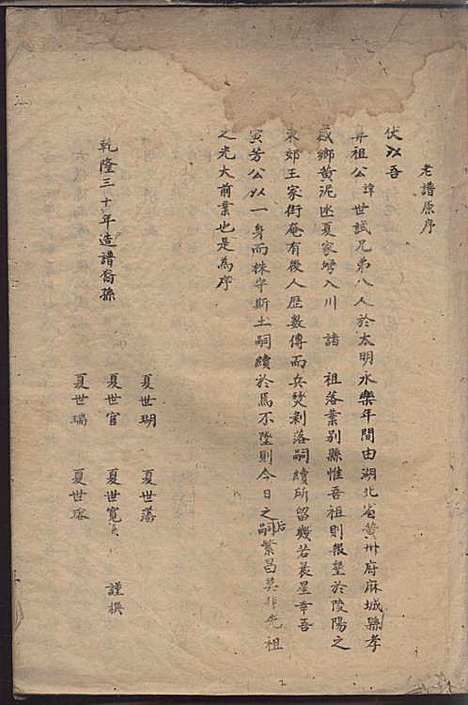 老譜原序
伏以吾
昇祖公諱世試兄弟八人於太明永樂年間由湖北省黄州府麻城縣孝
感鄉黄泥坵夏家灣入川 諸 祖落業别縣惟吾祖則報墾於陵陽之
東郊王家街庵有後人歷數傳而兵焚剥落嗣續所留幾若晨星幸吾
寅芳公以一身而株守斯土嗣續於焉不墜則今日之后嗣繁昌莫非先祖
之光大前業也是為序
乾隆三十年造譜裔孫
夏世瑚 夏世藩
夏世官 夏世寬 謹撰
夏世瑞 夏世瑢